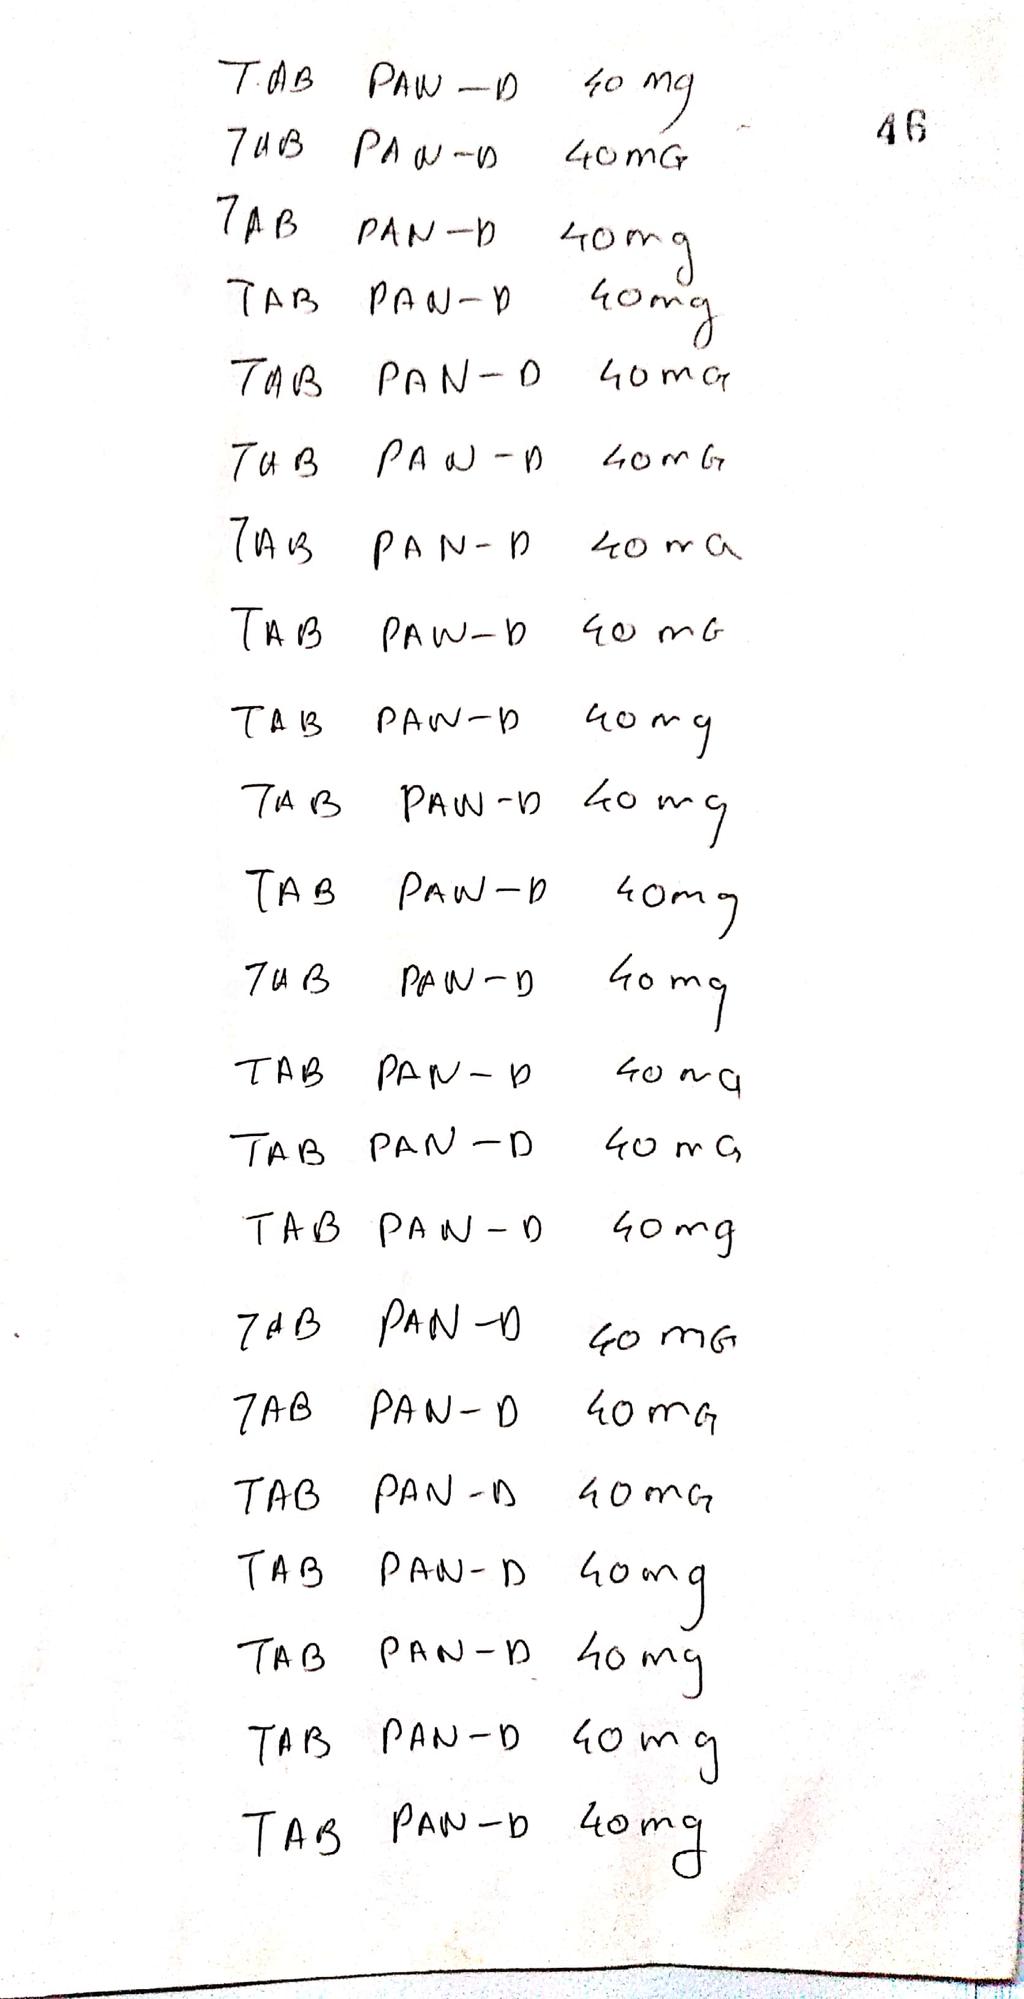 TAB PAN-D 40 mg
46
TAB PAN-D 40mG
TAB PAN-D 40mg
TAB PAN-D 40mg
TAB PAN-D 40mG
TAB PAN-D 40mG
TAB PAN-D 40mG
TAB PAN-D 40 mG
TAB PAN-D 40mg
TAB PAN-D 40mg
TAB PAN-D 40mg
TAB PAN-D 40mg
TAB PAN-D 40mg
TAB PAN-D 40mG
TAB PAN-D 40mg
TAB PAN-D 40 mG
TAB PAN-D 40mG
TAB PAN-D 40mG
TAB PAN-D 40mg
TAB PAN-D 40mg
TAB PAN-D 40mg
TAB PAN-D 40mg